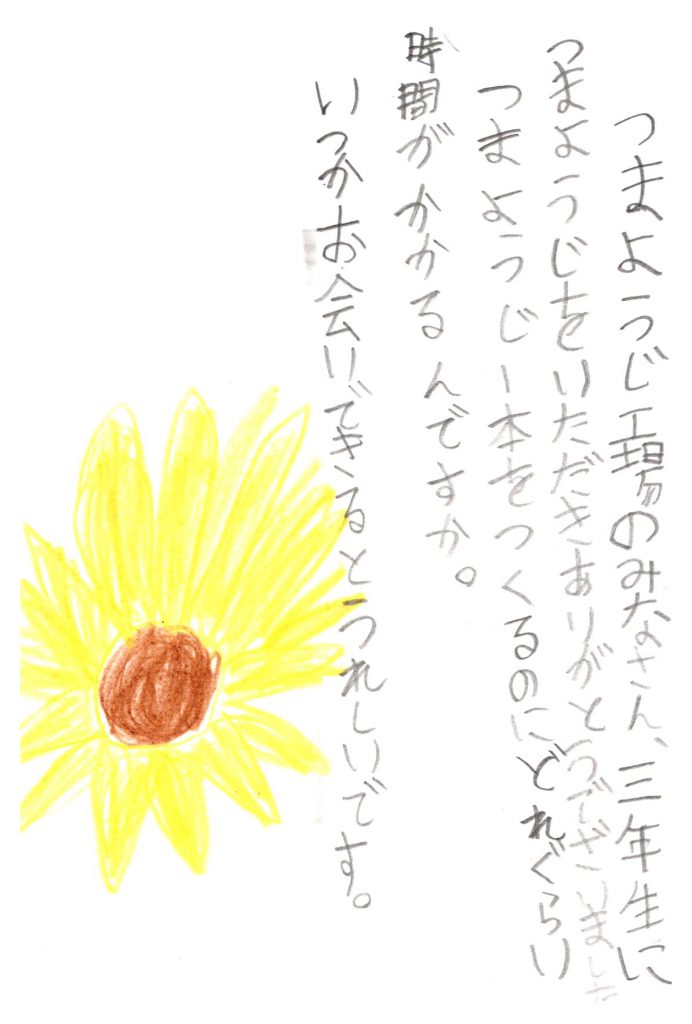 つまようじ工場のみなさん、三年生に
つまようじをいただきありがとうでざいました
つまようじ一本をつくるのにどれぐらい
時間がかかるんですか。
いつかお会いできるとうれしいです。